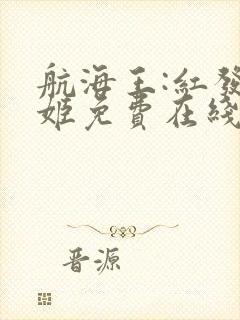 航海王:红發
姬免費在綫
晋源